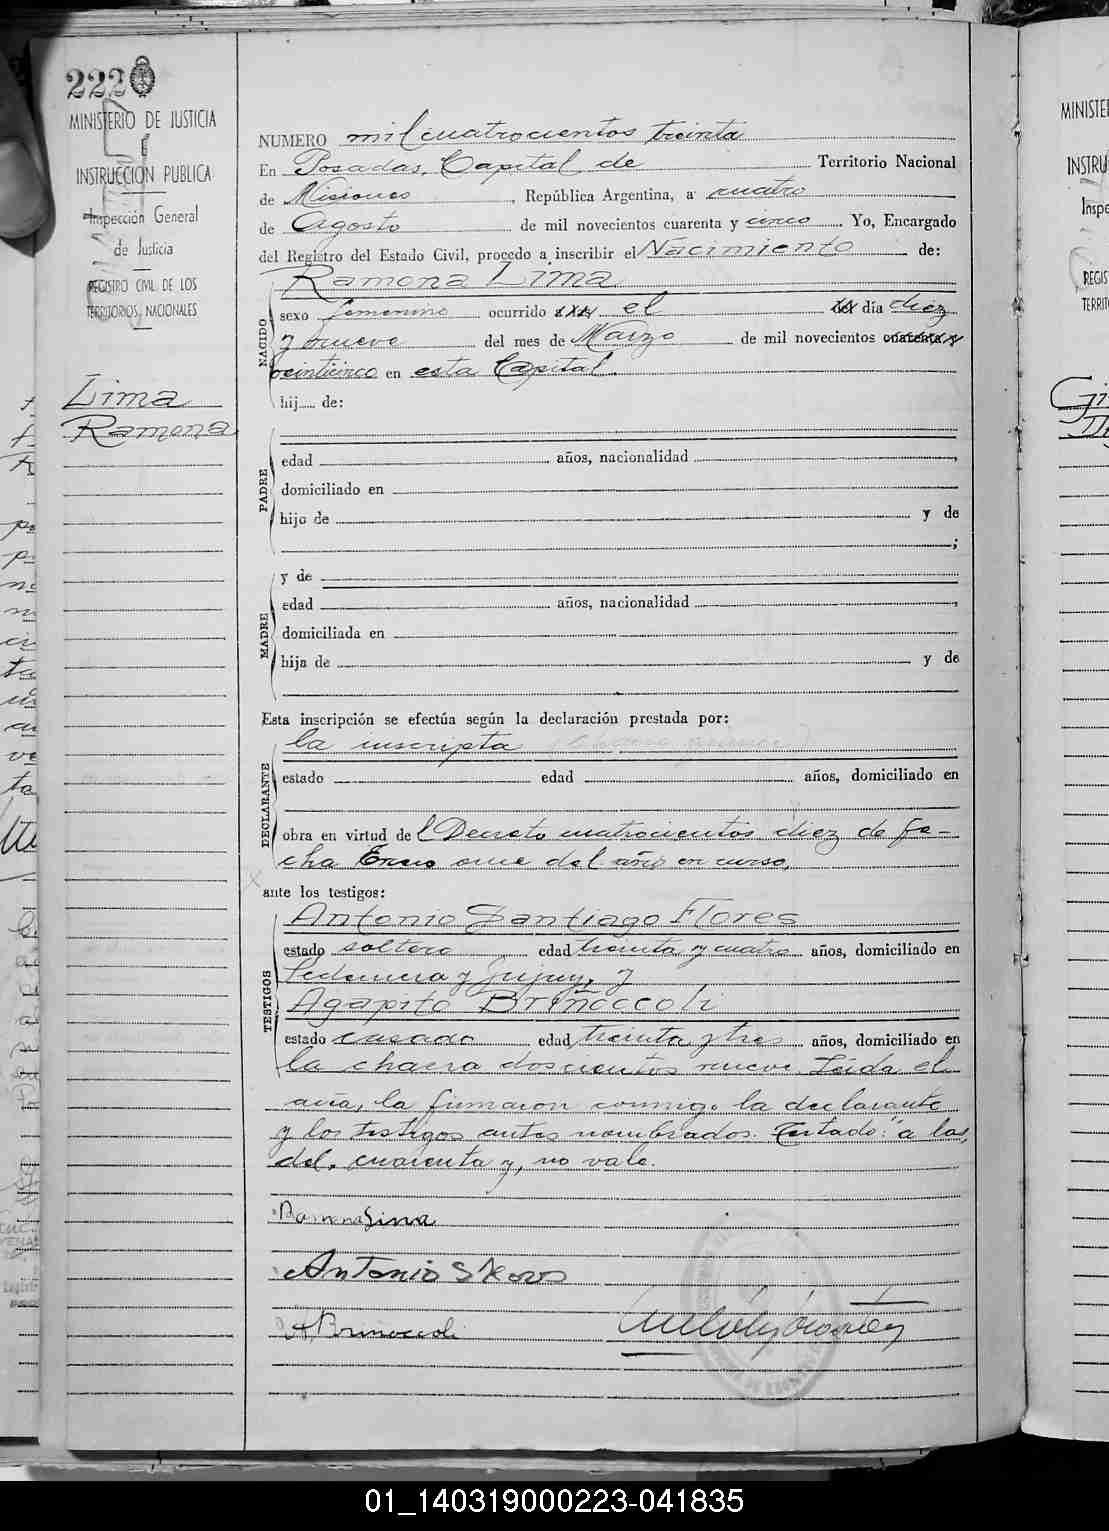 222
MINISTERIO DE JUSTICIA
E
INSTRUCCION PUBLICA
Inspección General
de Justicia
REGISTRO CIVIL DE LOS
TERRITORIOS NACIONALES
Lima
Ramona
NUMERO mil cuatrocientos treinta
En Posadas, Capital de Territorio Nacional
de Misiones, República Argentina, a cuatro
de Agosto de mil novecientos cuarenta y cinco. Yo, Encargado
del Registro del Estado Civil, procedo a inscribir el Nacimiento de:
Ramona Lima
NACIDO
sexo femenino ocurrido el del día diez
y nueve del mes de Marzo de mil novecientos cuarenta y
veinticinco en esta Capital.
hij de:
PADRE
edad años, nacionalidad,
domiciliado en
hijo de y de
;
MADRE
y de
edad años, nacionalidad,
domiciliada en
hija de y de
Esta inscripción se efectúa según la declaración prestada por:
la inscripta
DECLARANTE
estado edad años, domiciliado en
obra en virtud del Decreto cuatrocientos diez de fe-
cha Enero once del año en curso,
ante los testigos:
Antonio Santiago Flores
TESTIGOS
estado soltero edad treinta y cuatro años, domiciliado en
y Jujuy, y
Agapito Briñoccoli
estado casado edad treinta y tres años, domiciliado en
la chacra doscientos nueve. Leída el
acta, la firmaron conmigo la declarante
y los testigos antes nombrados. Testado: "a las,
del, cuarenta y, no vale.
Ramona Lima
Antonio S Flores
A Briñoccoli
MINISTE
INSTRU
Inspe
REGIS
TERRIT
01_140319000223-041835